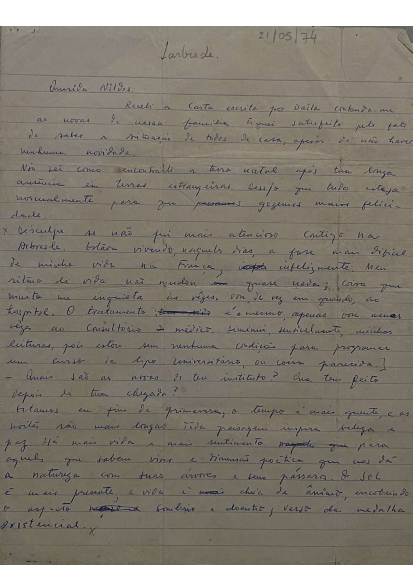 21/05/74
Querida Nildes.
Recebi a Carta escrita por Dalla contando-me
as novas de nossa família. Fiquei satisfeito pelo fato
de saber a situação de todos de casa, apesar de não haver
nenhuma novidade.
Não sei como encontraste a terra natal após tua longa
ausência em terras estrangeiras. Desejo que tudo esteja
normalmente para que gozemos maior felici-
dade
x Desculpe se não fui mais atencioso Contigo na
estava vivendo, naqueles dias, a fase mais difícil
de minha vida na França, infelizmente. Meu
ritmo de vida não mudou quase nada, coisa que
muito me enquieta às vêzes. Vou de vez em quando, ao
hospital. O tratamento é o mesmo, apenas vou
vêzes ao Consultório médico. Diminui, sensivelmente, minhas
leituras, pois estou sem nenhuma condição para programar
um curso tipo universitário, ou coisa parecida.]
- Quais são as novas do teu instituto? Que tens feito
depois de tua chegada?
Estamos em fins de primavera, o tempo é mais quente, e as
noites são mais longas. paisagem inspira beleza e
paz. Há mais vida e mais sentimento para
aqueles que sabem viver a dimensão poética que nos dá
a natureza com suas árvores e seus pássaros. O Sol
é mais presente, a vida é cheia de ânimo, encobrindo
o aspecto sombrio e doentio, verso da medalha
existencial. x